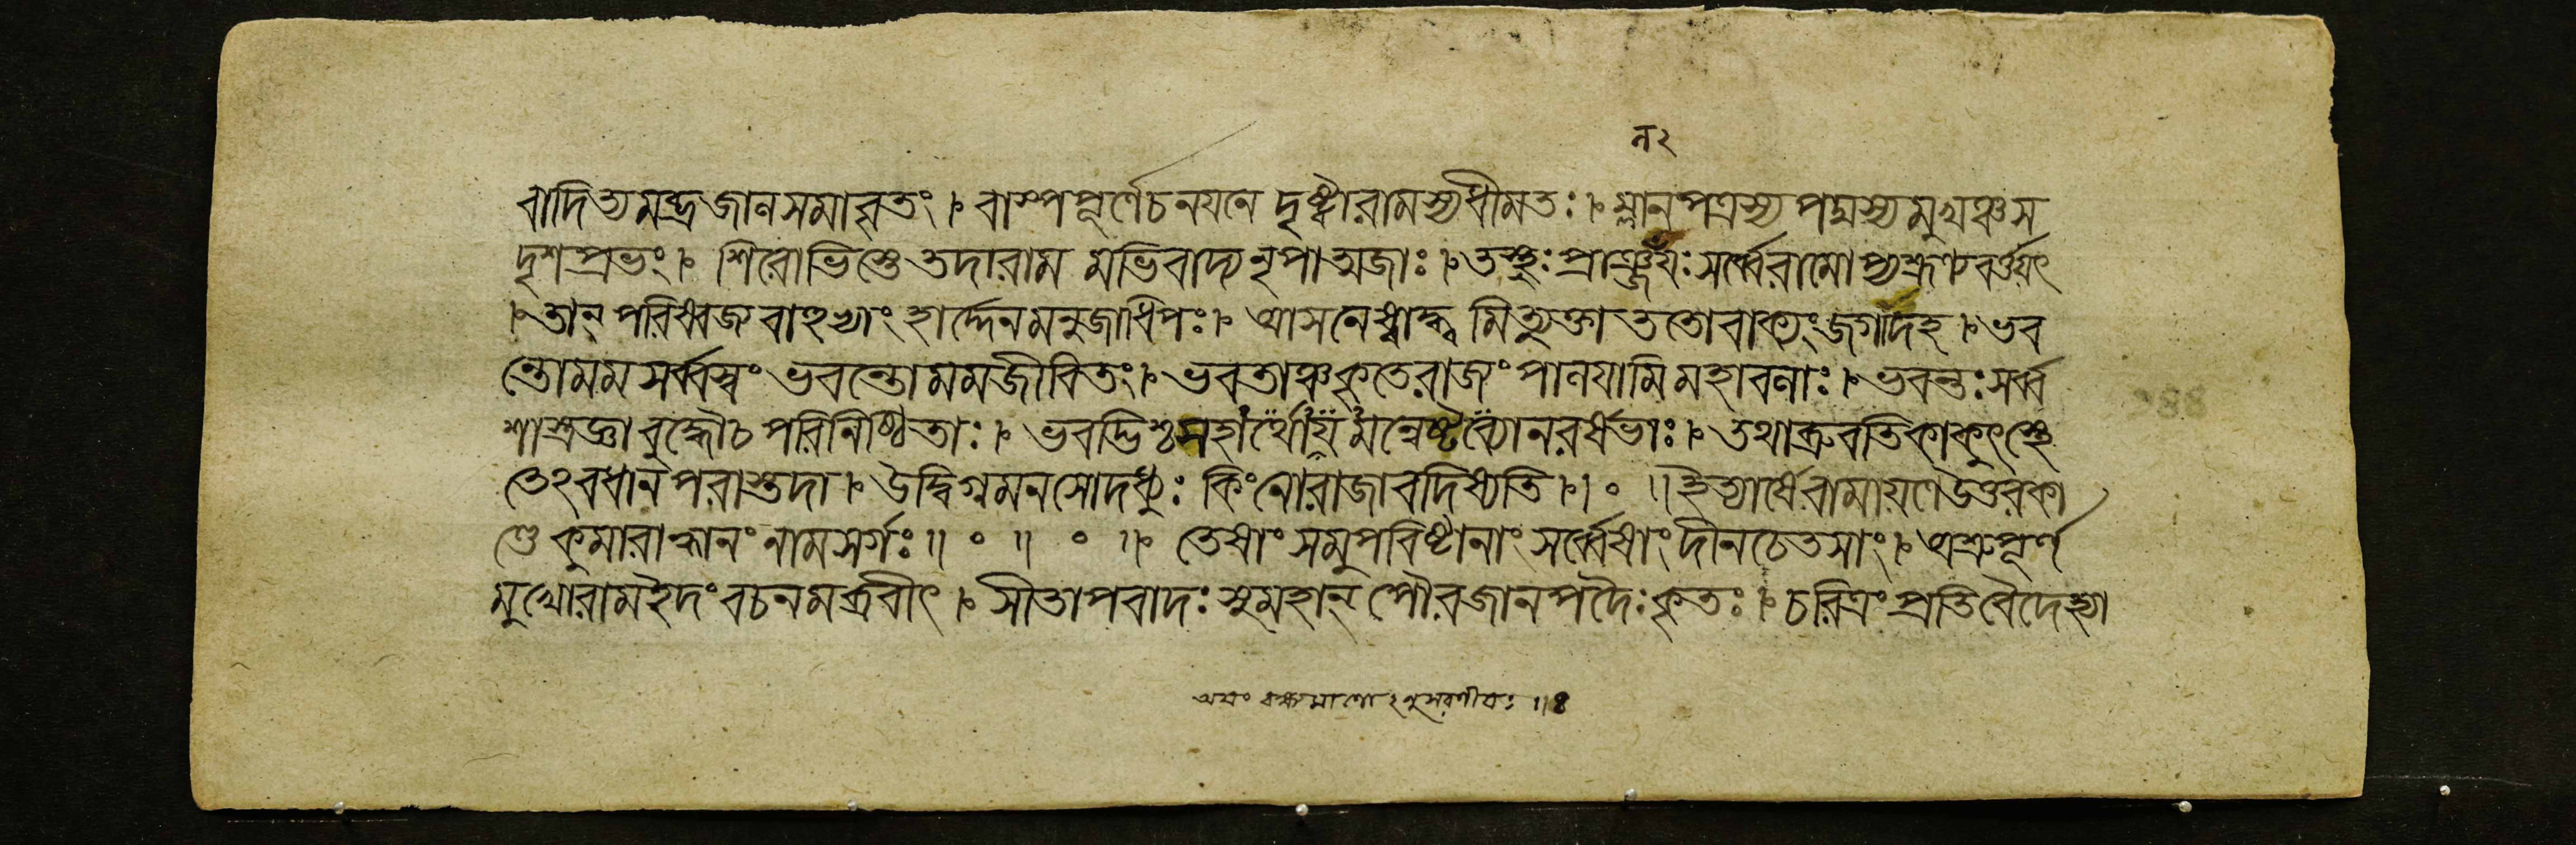 ন২
বাদিত্যমভ্রজালসমাবৃতং। বাস্পপূর্ণেচনয়নে দৃষ্ট্বারামস্যধীমতঃ। ম্লানপত্রস্য পদ্মস্যমুখঞ্চস
দৃশপ্রভং। শিরোভিস্তে তদারাম মভিবাদ্য নৃপাত্মজাঃ। তস্থুঃ প্রাঞ্জলয়ঃ সর্ব্বেরামোপ্যশ্রূণ্যবর্ত্তয়ৎ
। তান্ পরিষ্বজ্য বাহুভ্যাং হার্দ্দেনমনুজাধিপঃ। আসনেষ্বাধ্ব মিত্যুক্তা ততোবাক্যং জগাদহ। ভব
ন্তোমম সর্ব্বস্বং ভবন্তোমমজীবিতং। ভবতাঞ্চকৃতেরাজ্যং পালয়ামিমহাবলাঃ। ভবন্তঃ সর্ব্ব
শাস্ত্রজ্ঞা বুদ্ধৌচ পরিনিষ্ঠিতাঃ। ভবদ্ভিশ্চসহার্থোয়মন্বেষ্টব্যোনরর্ষভাঃ। তথাব্রুবতিকাকুৎস্থে
তেঽবধানপরাস্তদা। উদ্বিগ্নমনসোদধ্যুঃ কিংনোরাজাবদিষ্যতি।।॰ ॥ ইত্যার্ষেরামায়ণেউত্তরকা
ণ্ডে কুমারাহ্বানং নামসর্গঃ॥ ॰ ॥ ॰ ॥ তেষাং সমুপবিষ্টানাং সর্ব্বেষাং দীনচেতসাং। অশ্রুপূর্ণ
মুখোরামইদং বচনমব্রবীৎ। সীতাপবাদঃ সুমহান্ পৌরজানপদৈঃ কৃতঃ। চরিত্রং প্রতিবৈদেহ্যা
অয়ং বক্ষ্যমাণোঽনুসরণীয়ঃ॥৪